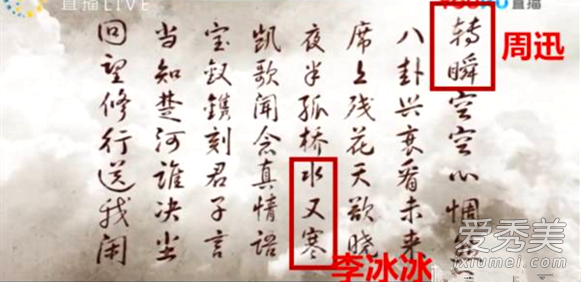 直播LIVE
直播
转瞬空空心惆
八卦兴衰看未来
席上残花天欲晓
夜半孤桥水又寒
凯歌闻念真情语
宝钗镌刻君子言
当知楚河谁决
回望修行送我闲
周迅
李冰冰
爱秀美
ixiumei.com